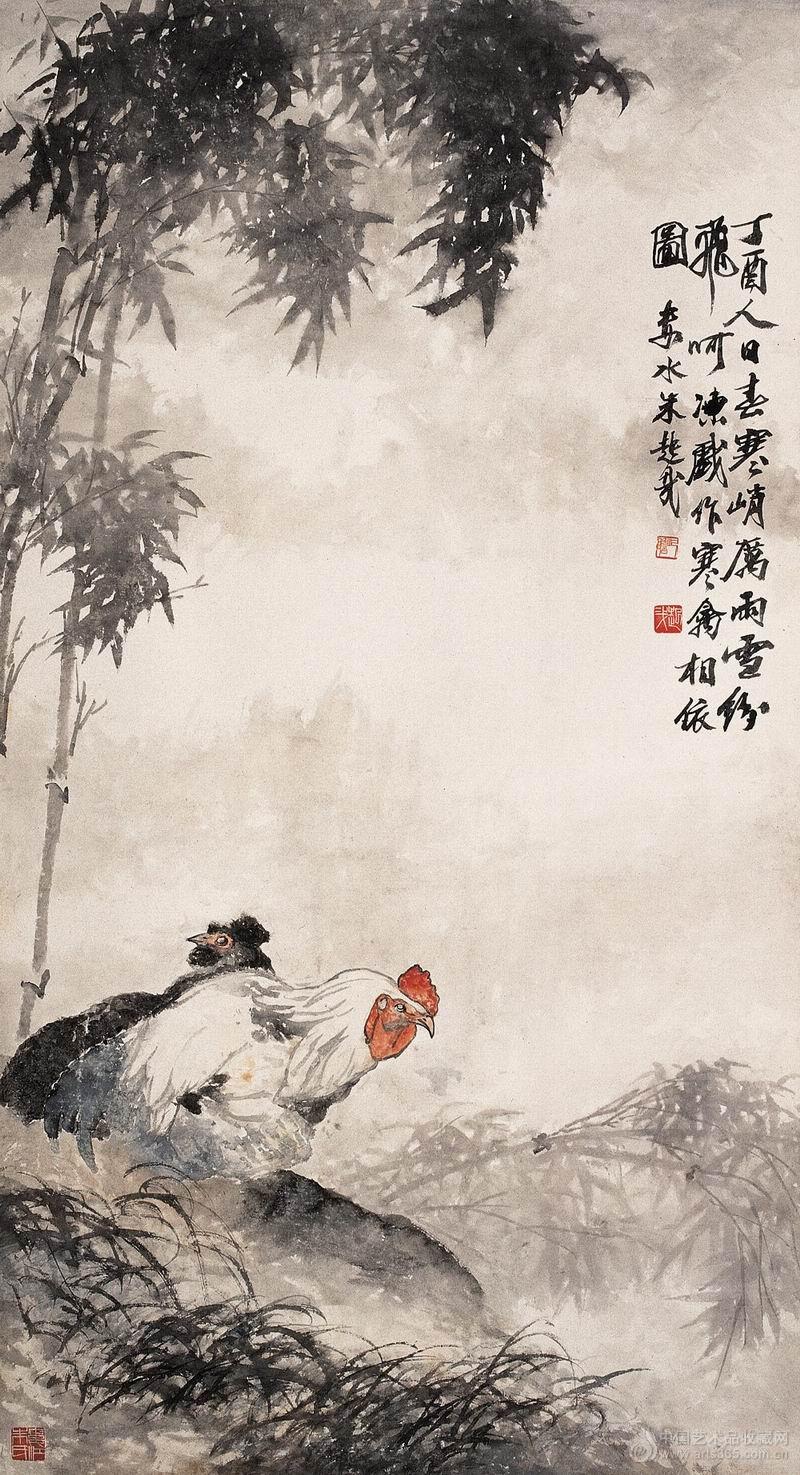 丁酉人日春寒峭厲雨雪紛
飛呵凍戲作寒禽相依
圖 婁水朱
中国艺术品收藏网
www.arts365.com.cn